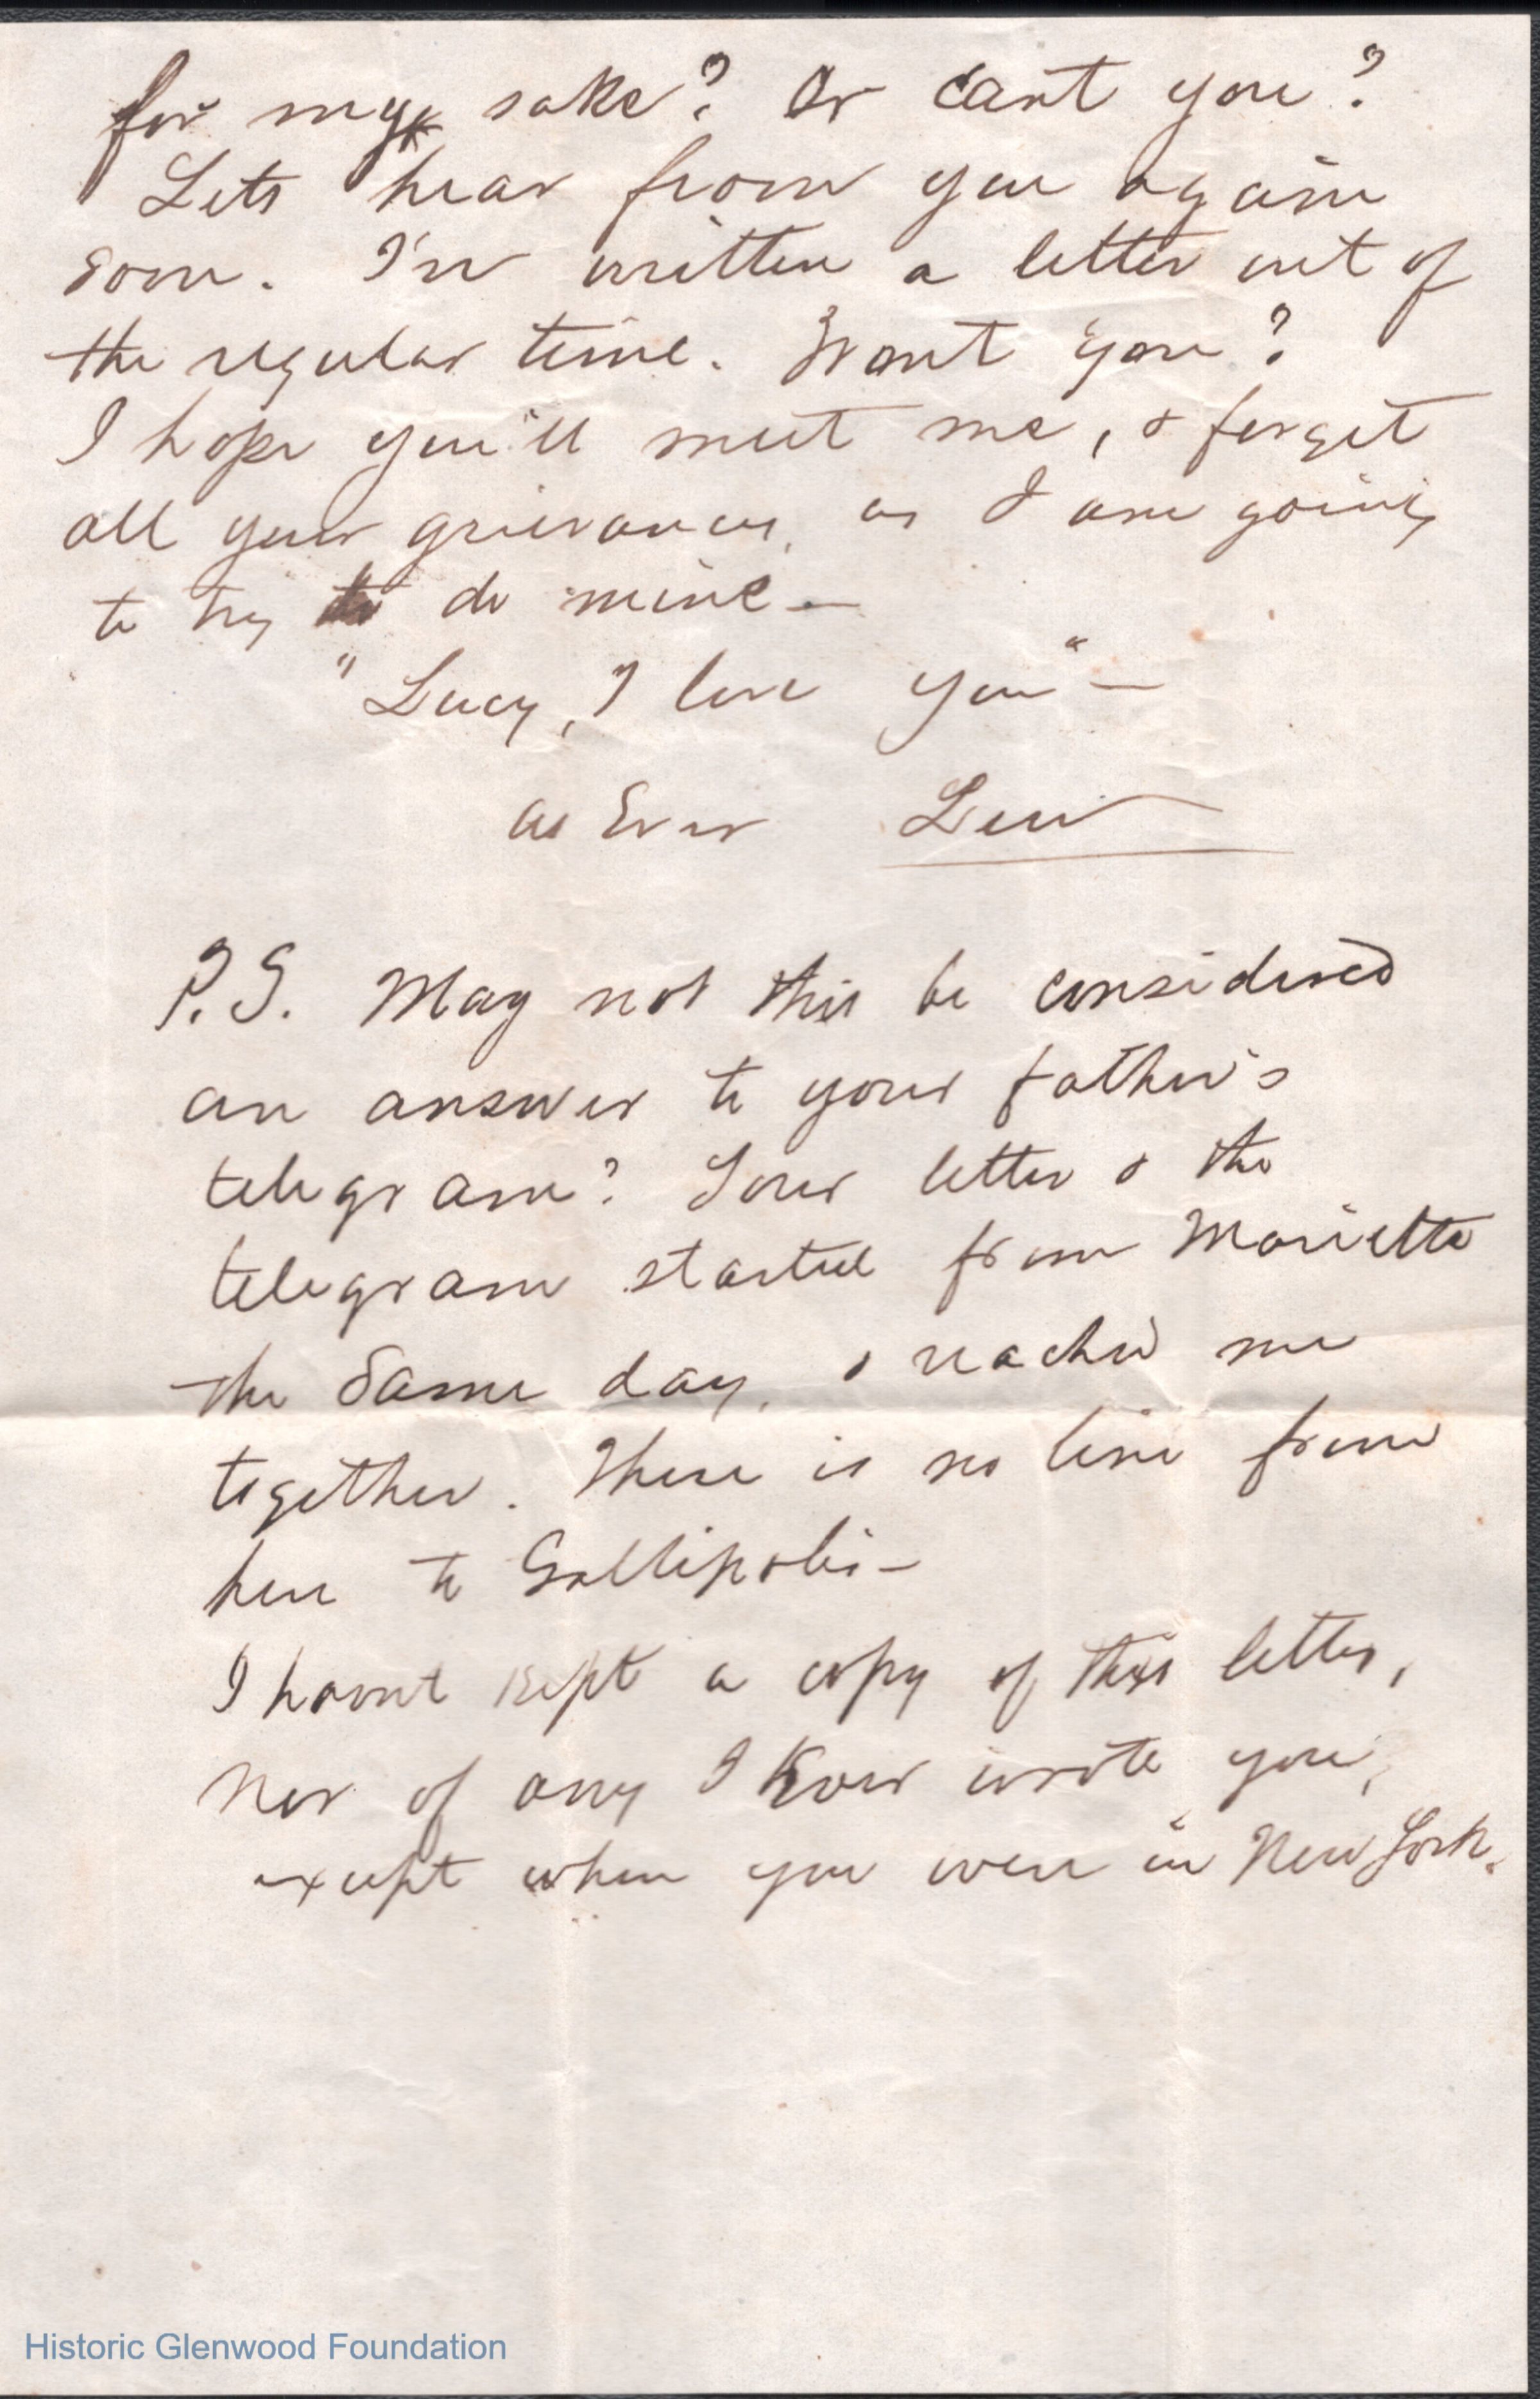 for my sake? Or cant you?
Lets hear from you again
soon. I've written a letter out of
the regular time. Wont you?
I hope you'll meet me, & forget
all your grievances, as I am going
to try to do mine —
"Lucy, I love you" —
as Ever Lew
P.S. May not this be considered
an answer to your father's
telegram? Your letter & the
telegram started from Marietta
the same day, & reached me
together. There is no line from
here to Gallipolis —
I havnt kept a copy of this letter,
nor of any I ever wrote you,
except when you were in New York.
Historic Glenwood Foundation